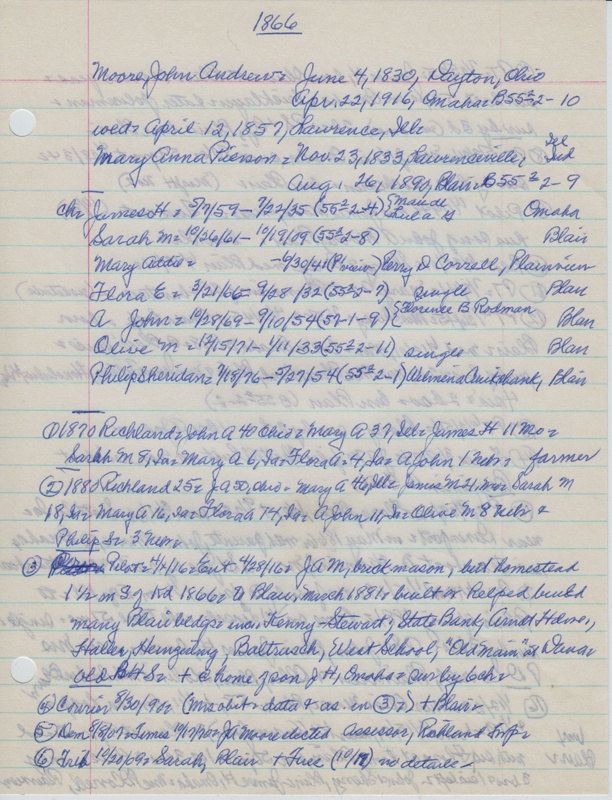 1866
Moore, John Andrew = June 4, 1830, Dayton, Ohio
Apr. 22, 1916, Omaha = B55½2-10
wed = April 12, 1857, Lawrence, Ills
Mary Anna Pierson = Nov. 23, 1833, Lawrenceville, Ill
Aug. 26, 1890, Blair = B55½2-9
Ch: James H = 5/7/59 - 7/22/35 (55½2-4) {Maude Lula G Omaha
Sarah M = 10/26/61 - 10/19/09 (55½2-8) Blair
Mary Addie = - 6/30/41 (Plview) Perry D Correll, Plainview
Flora E = 3/21/66 - 9/28/32 (55½2-7) single Blair
A. John = 10/28/69 - 9/10/54 (57-1-9) {Florence B Rodman Blair
Olive M = 12/15/71 - 1/11/33 (55½2-11) single Blair
Philip Sheridan = 7/18/76 - 5/27/54 (55½2-1) Welmena Cruikshank, Blair
① 1870 Richland = John A 40 Ohio = Mary A 37, Ill = James H 11 Mo =
Sarah M 8, Ia = Mary A 6, Ia = Flora A = 4, Ia = A John 1 Nebr = farmer
② 1880 Richland 25 = J A 50, Ohio = Mary A 46, Ill = James M 21, Mo = Sarah M
18, Ia = Mary A 16, Ia = Flora A 14, Ia = A John 11, Ia = Olive M 8 Nebr &
Philip S = 3 Nebr =
③ Pilot = 4/4/16 = & Ent 4/28/16 = J A M, brick mason, but homestead
1½ on S of Kd 1866 = to Blair, March 1881 = built or helped build
many Blair bldgs = inc. Kenny-Stewart, State Bank, Arndt Home,
Haller, Hemzeing, Baltrusch, West School, "Old Main" at Danas
old B H S = + c home of son J H, Omaha = surv by 6 ch =
④ Courier 8/30/90 = (Mrs obit = data & as. in ③ =) + Blair =
⑤ Dem = Times = J A Moore elected assessor, Richland
⑥ Trib 10/20/09 = Sarah, Blair + Free (10/19) no details =